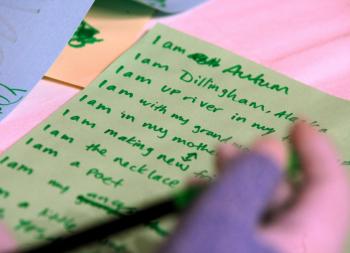 I am Autumn
I am Dillingham, Alaska
I am up river in my
I am with my grand
I am in my moth
I am making new
I am the necklace
I am a poet
I am my
I am a little